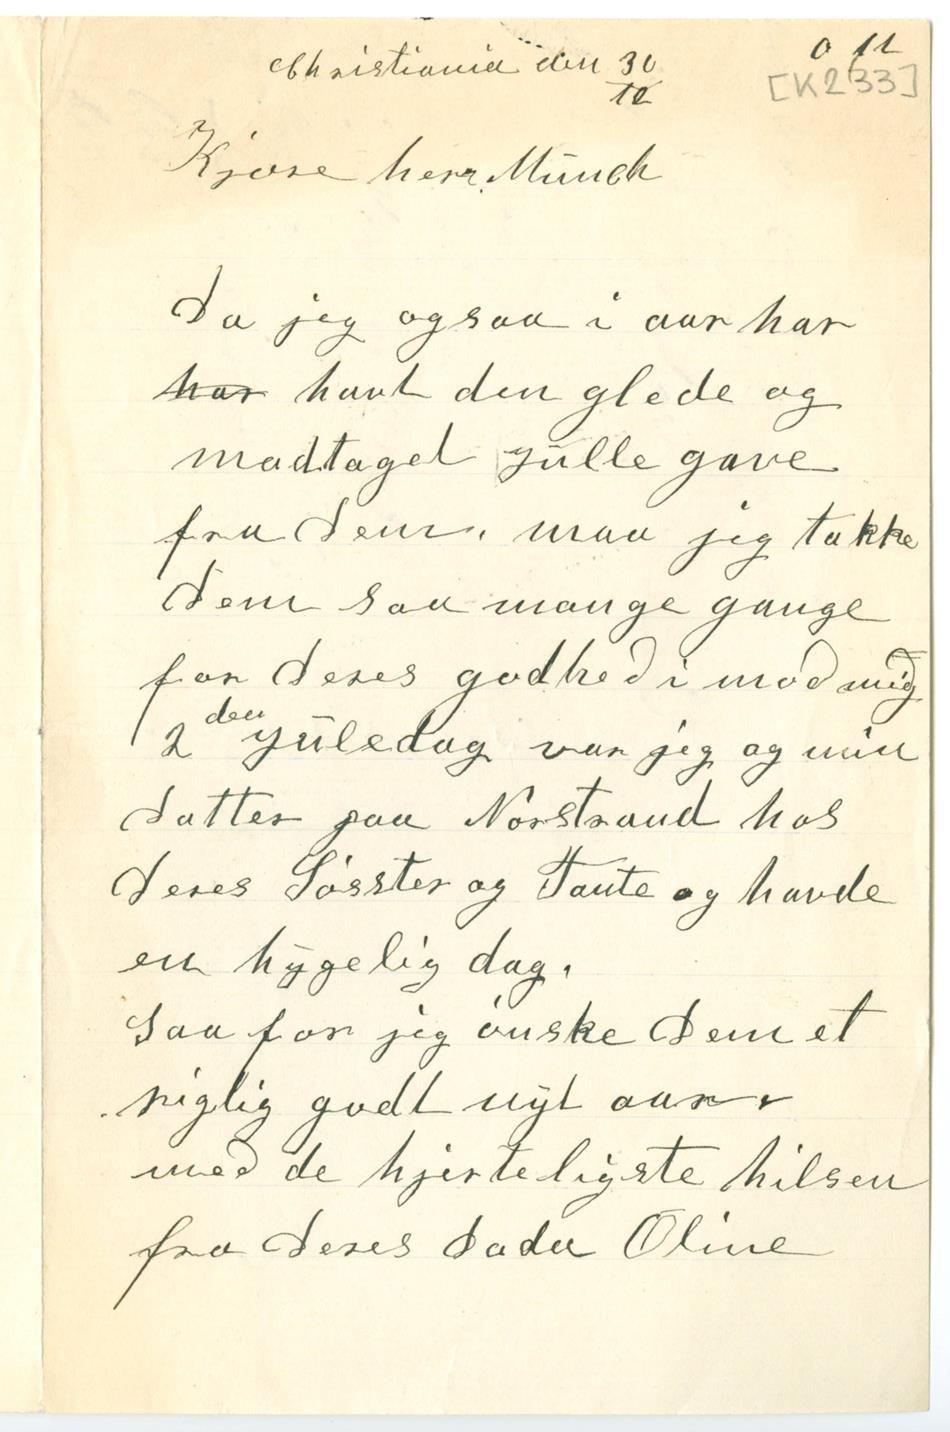 Christiania den 30/12
0 11
[K233]
Kjære herr Münch
Da jeg ogsaa i aar har
har havt den glede og
modtaget jülle gave
fra Dem. maa jeg takke
Dem saa mange gange
for Deres godhed i mod mig
2 den jüledag var jeg og min
datter paa Norstrand hos
Deres Sösster og Tante og havde
en hygelig dag.
saa for jeg önske Dem et
riglig godt nyt aar.
med de hjerteligste hilsen
fra Deres Dada Oline